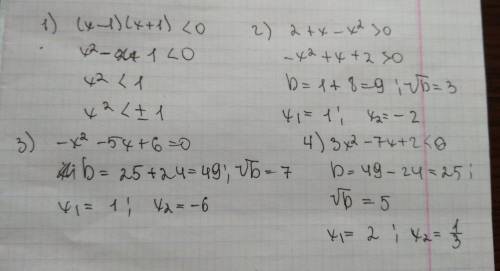 1) (x-1)(x+1) <0
x²- 1 <0
x² < 1
x² < ± 1
2) 2 + x - x² >0
-x² + x + 2 >0
D = 1 + 8 = 9 ; √D = 3
x₁ = 1 ; x₂ = -2
3) -x² - 5x + 6 = 0
D = 25 + 24 = 49 ; √D = 7
x₁ = 1 ; x₂ = -6
4) 3x² - 7x + 2 < 0
D = 49 - 24 = 25 ;
√D = 5
x₁ = 2 ; x₂ = 1/3